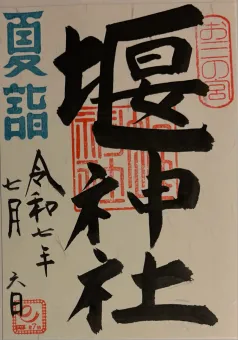 お二の宮
堰神社
夏詣
令和七年
七月 六日